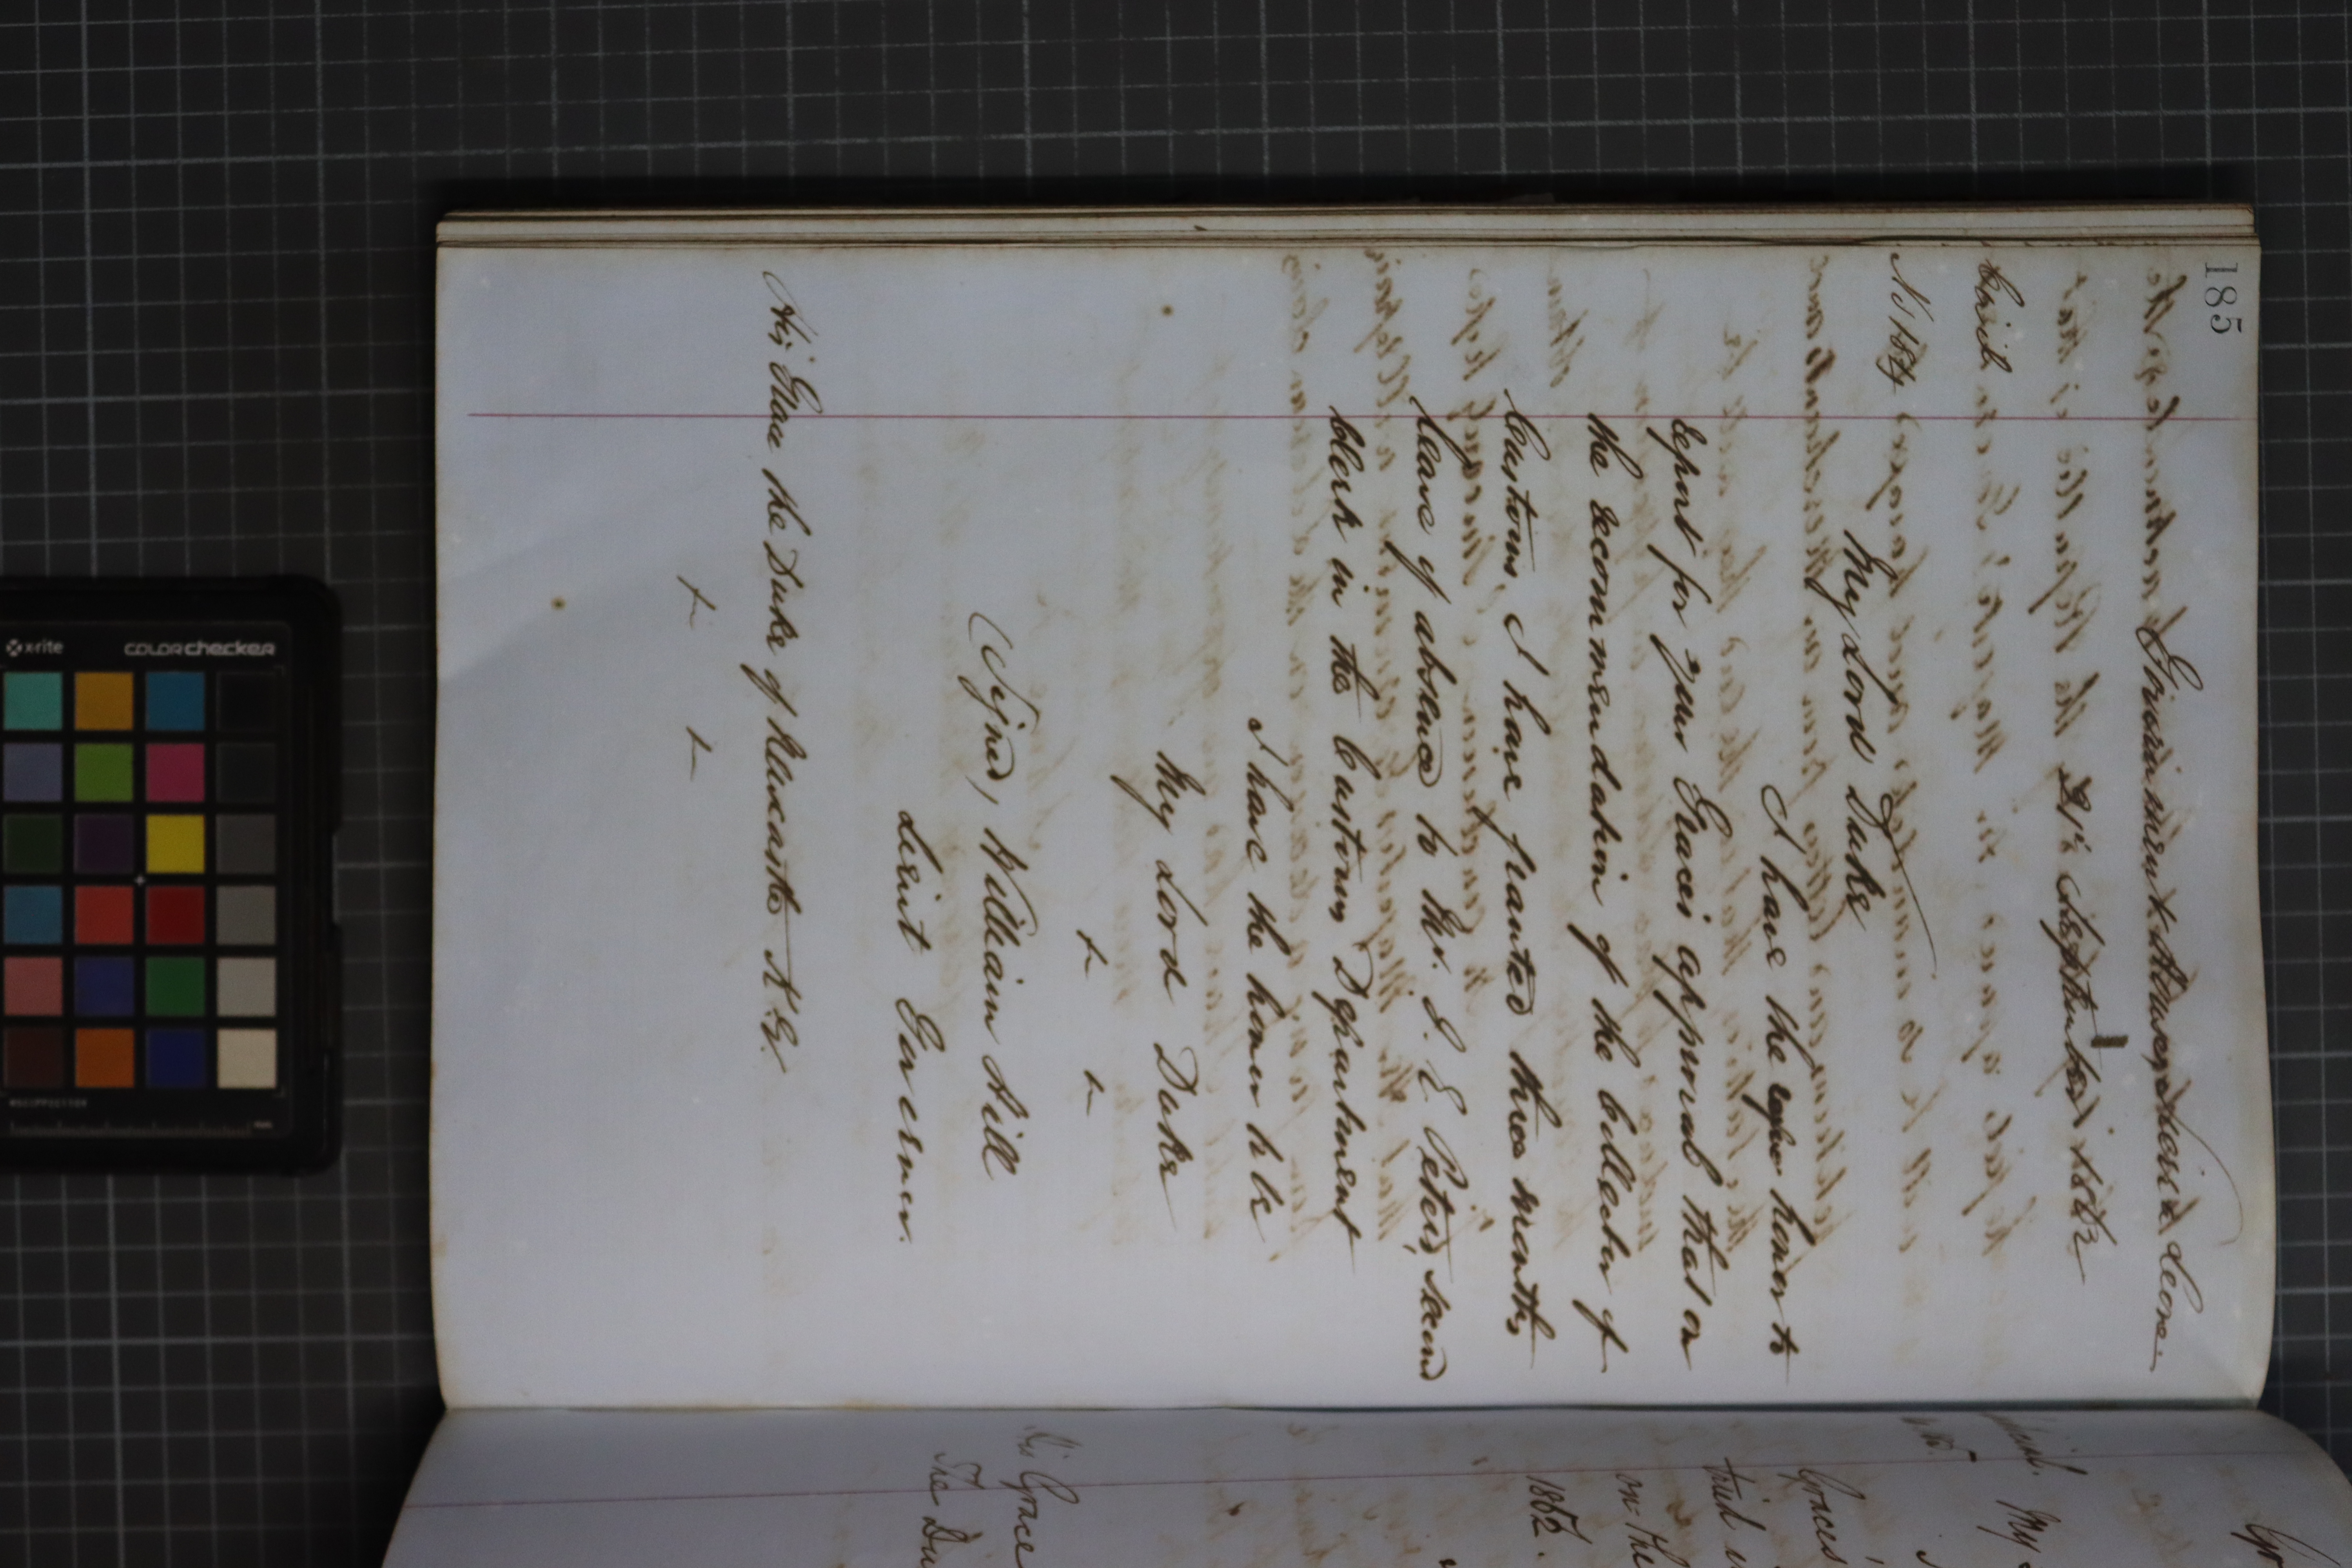 185
Government House, Sierra Leone.
21st September 1862
Civil
No 164
My Lord Duke
I have the honor to
report for your Graces approval that on
the recommendation of the Collector of
Customs, I have granted three months
leave of absence to Mr. J. E. Peters, second
Clerk in the Customs Department
I have the honor to be
My Lord Duke
&c &c
(Signed) William Hill
Lieut Governor.
His Grace the Duke of Newcastle K.G.
&c &c
My
Graces
tried
on the
1862.
His Grace
The Du
x-rite
colorchecker